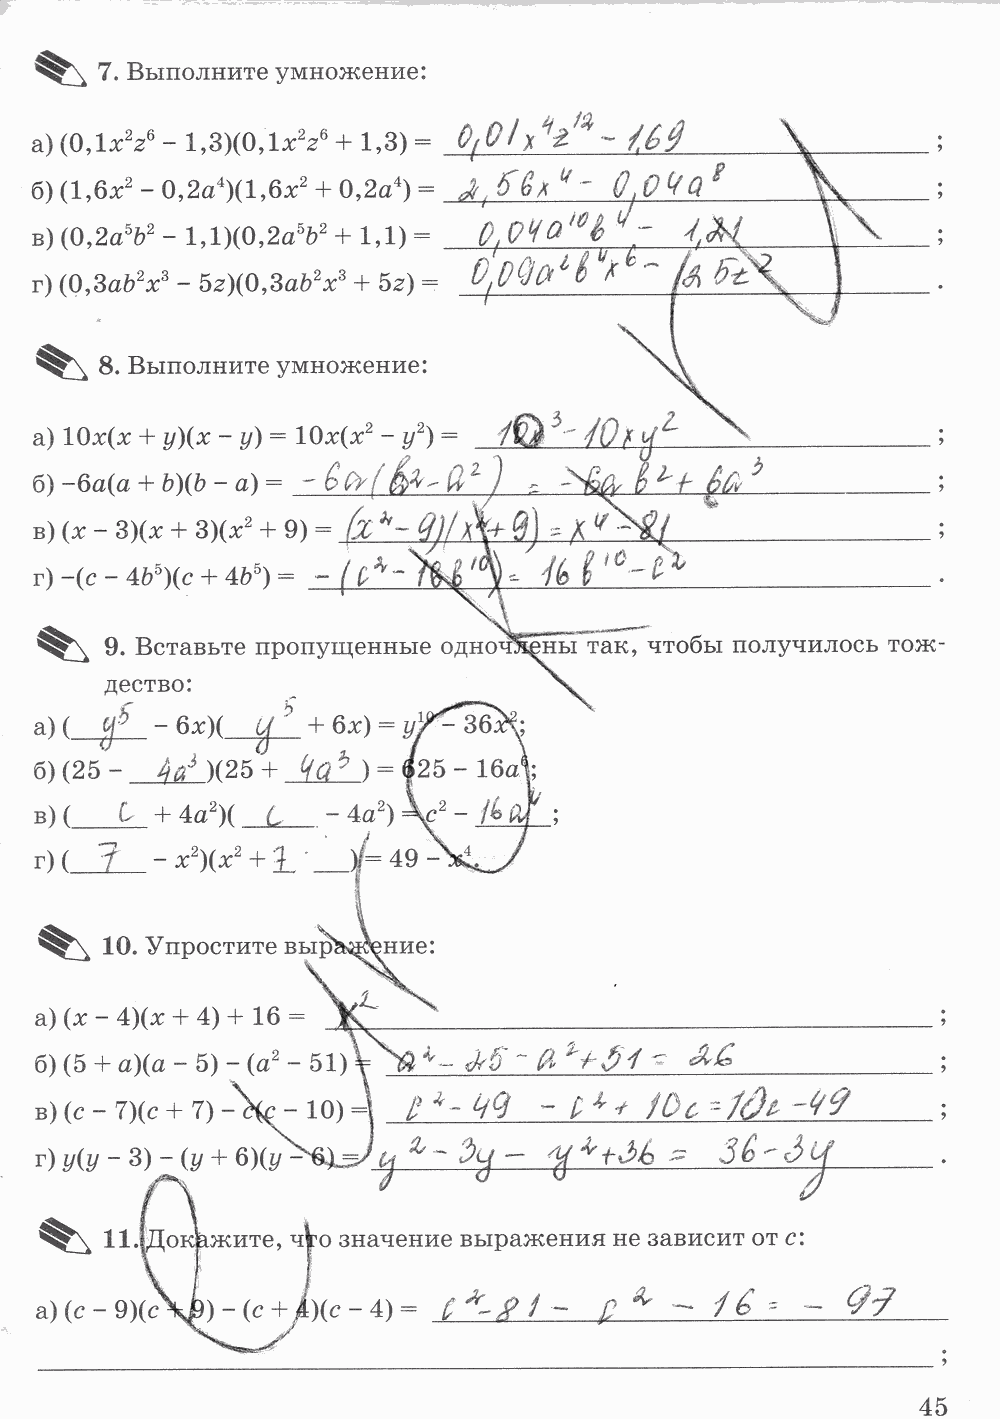 7. Выполните умножение:
а) (0,1x²z⁶ − 1,3)(0,1x²z⁶ + 1,3) = 0,01x⁴z¹² − 1,69 ;
б) (1,6x² − 0,2a⁴)(1,6x² + 0,2a⁴) = 2,56x⁴ − 0,04a⁸ ;
в) (0,2a⁵b² − 1,1)(0,2a⁵b² + 1,1) = 0,04a¹⁰b⁴ − 1,21 ;
г) (0,3ab²x³ − 5z)(0,3ab²x³ + 5z) = 0,09a²b⁴x⁶ − 25z² .
8. Выполните умножение:
а) 10x(x + y)(x − y) = 10x(x² − y²) = 10x³ − 10xy² ;
б) −6a(a + b)(b − a) = −6a(b² − a²) = −6ab² + 6a³ ;
в) (x − 3)(x + 3)(x² + 9) = (x² − 9)(x² + 9) = x⁴ − 81 ;
г) −(c − 4b⁵)(c + 4b⁵) = −(c² − 16b¹⁰) = 16b¹⁰ − c² .
9. Вставьте пропущенные одночлены так, чтобы получилось тож-
дество:
а) ( y⁵ − 6x)( y⁵ + 6x) = y¹⁰ − 36x²;
б) (25 − 4a³ )(25 + 4a³ ) = 625 − 16a⁶;
в) ( c + 4a²)( c − 4a²) = c² − 16a⁴ ;
г) ( 7 − x²)(x² + 7 ) = 49 − x⁴.
10. Упростите выражение:
а) (x − 4)(x + 4) + 16 = x² ;
б) (5 + a)(a − 5) − (a² − 51) = a² − 25 − a² + 51 = 26 ;
в) (c − 7)(c + 7) − c(c − 10) = c² − 49 − c² + 10c = 10c − 49 ;
г) y(y − 3) − (y + 6)(y − 6) = y² − 3y − y² + 36 = 36 − 3y .
11. Докажите, что значение выражения не зависит от c:
а) (c − 9)(c + 9) − (c + 4)(c − 4) = c² − 81 − c² − 16 = − 97
;
45